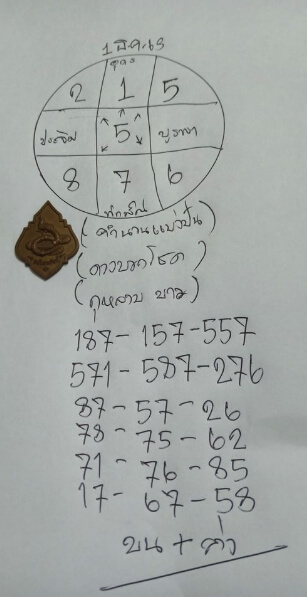 1 มี.ค. 69
อุดร
2 1 5
ประจิม 5 บูรพา
8 7 6
ทักษิณ
(ตำนานแม่งูปั้น)
(ดาวบอกโชค)
(กุหลาบ ขาว)
187-157-557
571-587-276
87-57-26
78-75-62
71-76-85
17-67-58
บน + ล่าง